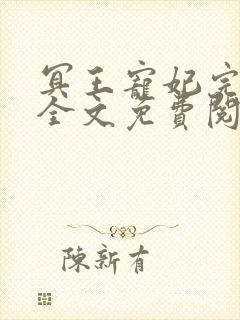 冥王寵妃完
全文免費閱
陳新有